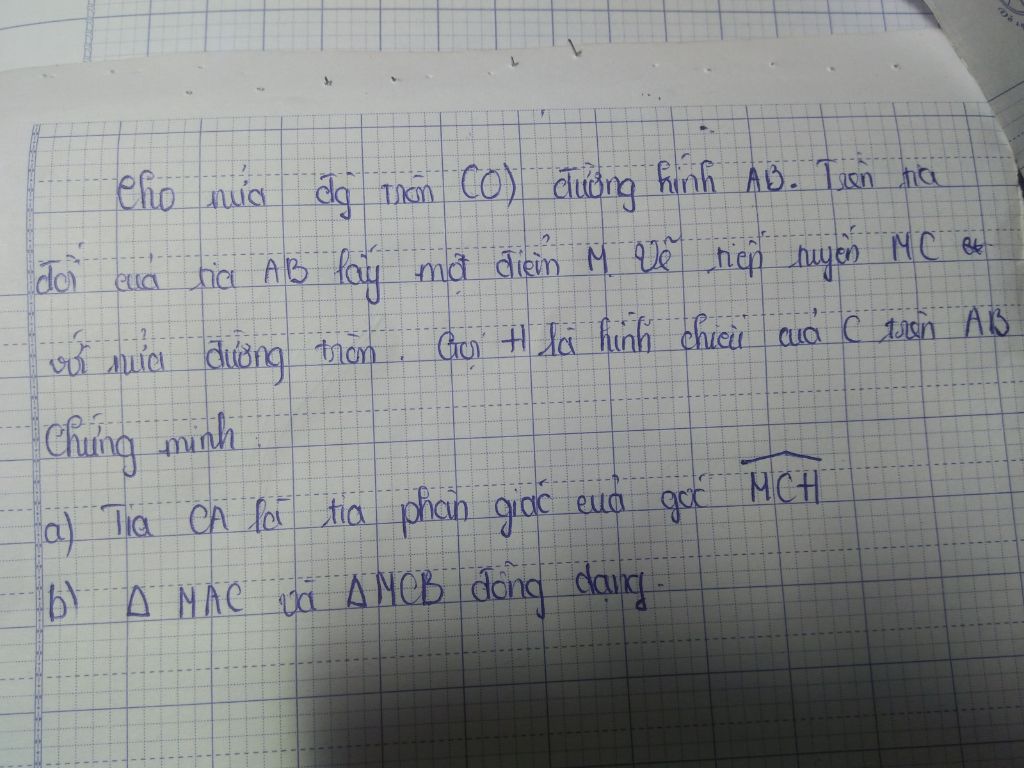 Cho nửa đg tròn (O) đường kính AB. Trên tia
đối của tia AB lấy một điểm M. Vẽ tiếp tuyến MC
với nửa đường tròn. Gọi H là hình chiếu của C trên AB
Chứng minh.
a) Tia CA là tia phân giác của góc MCH
b) Δ MAC và Δ MCB đồng dạng.